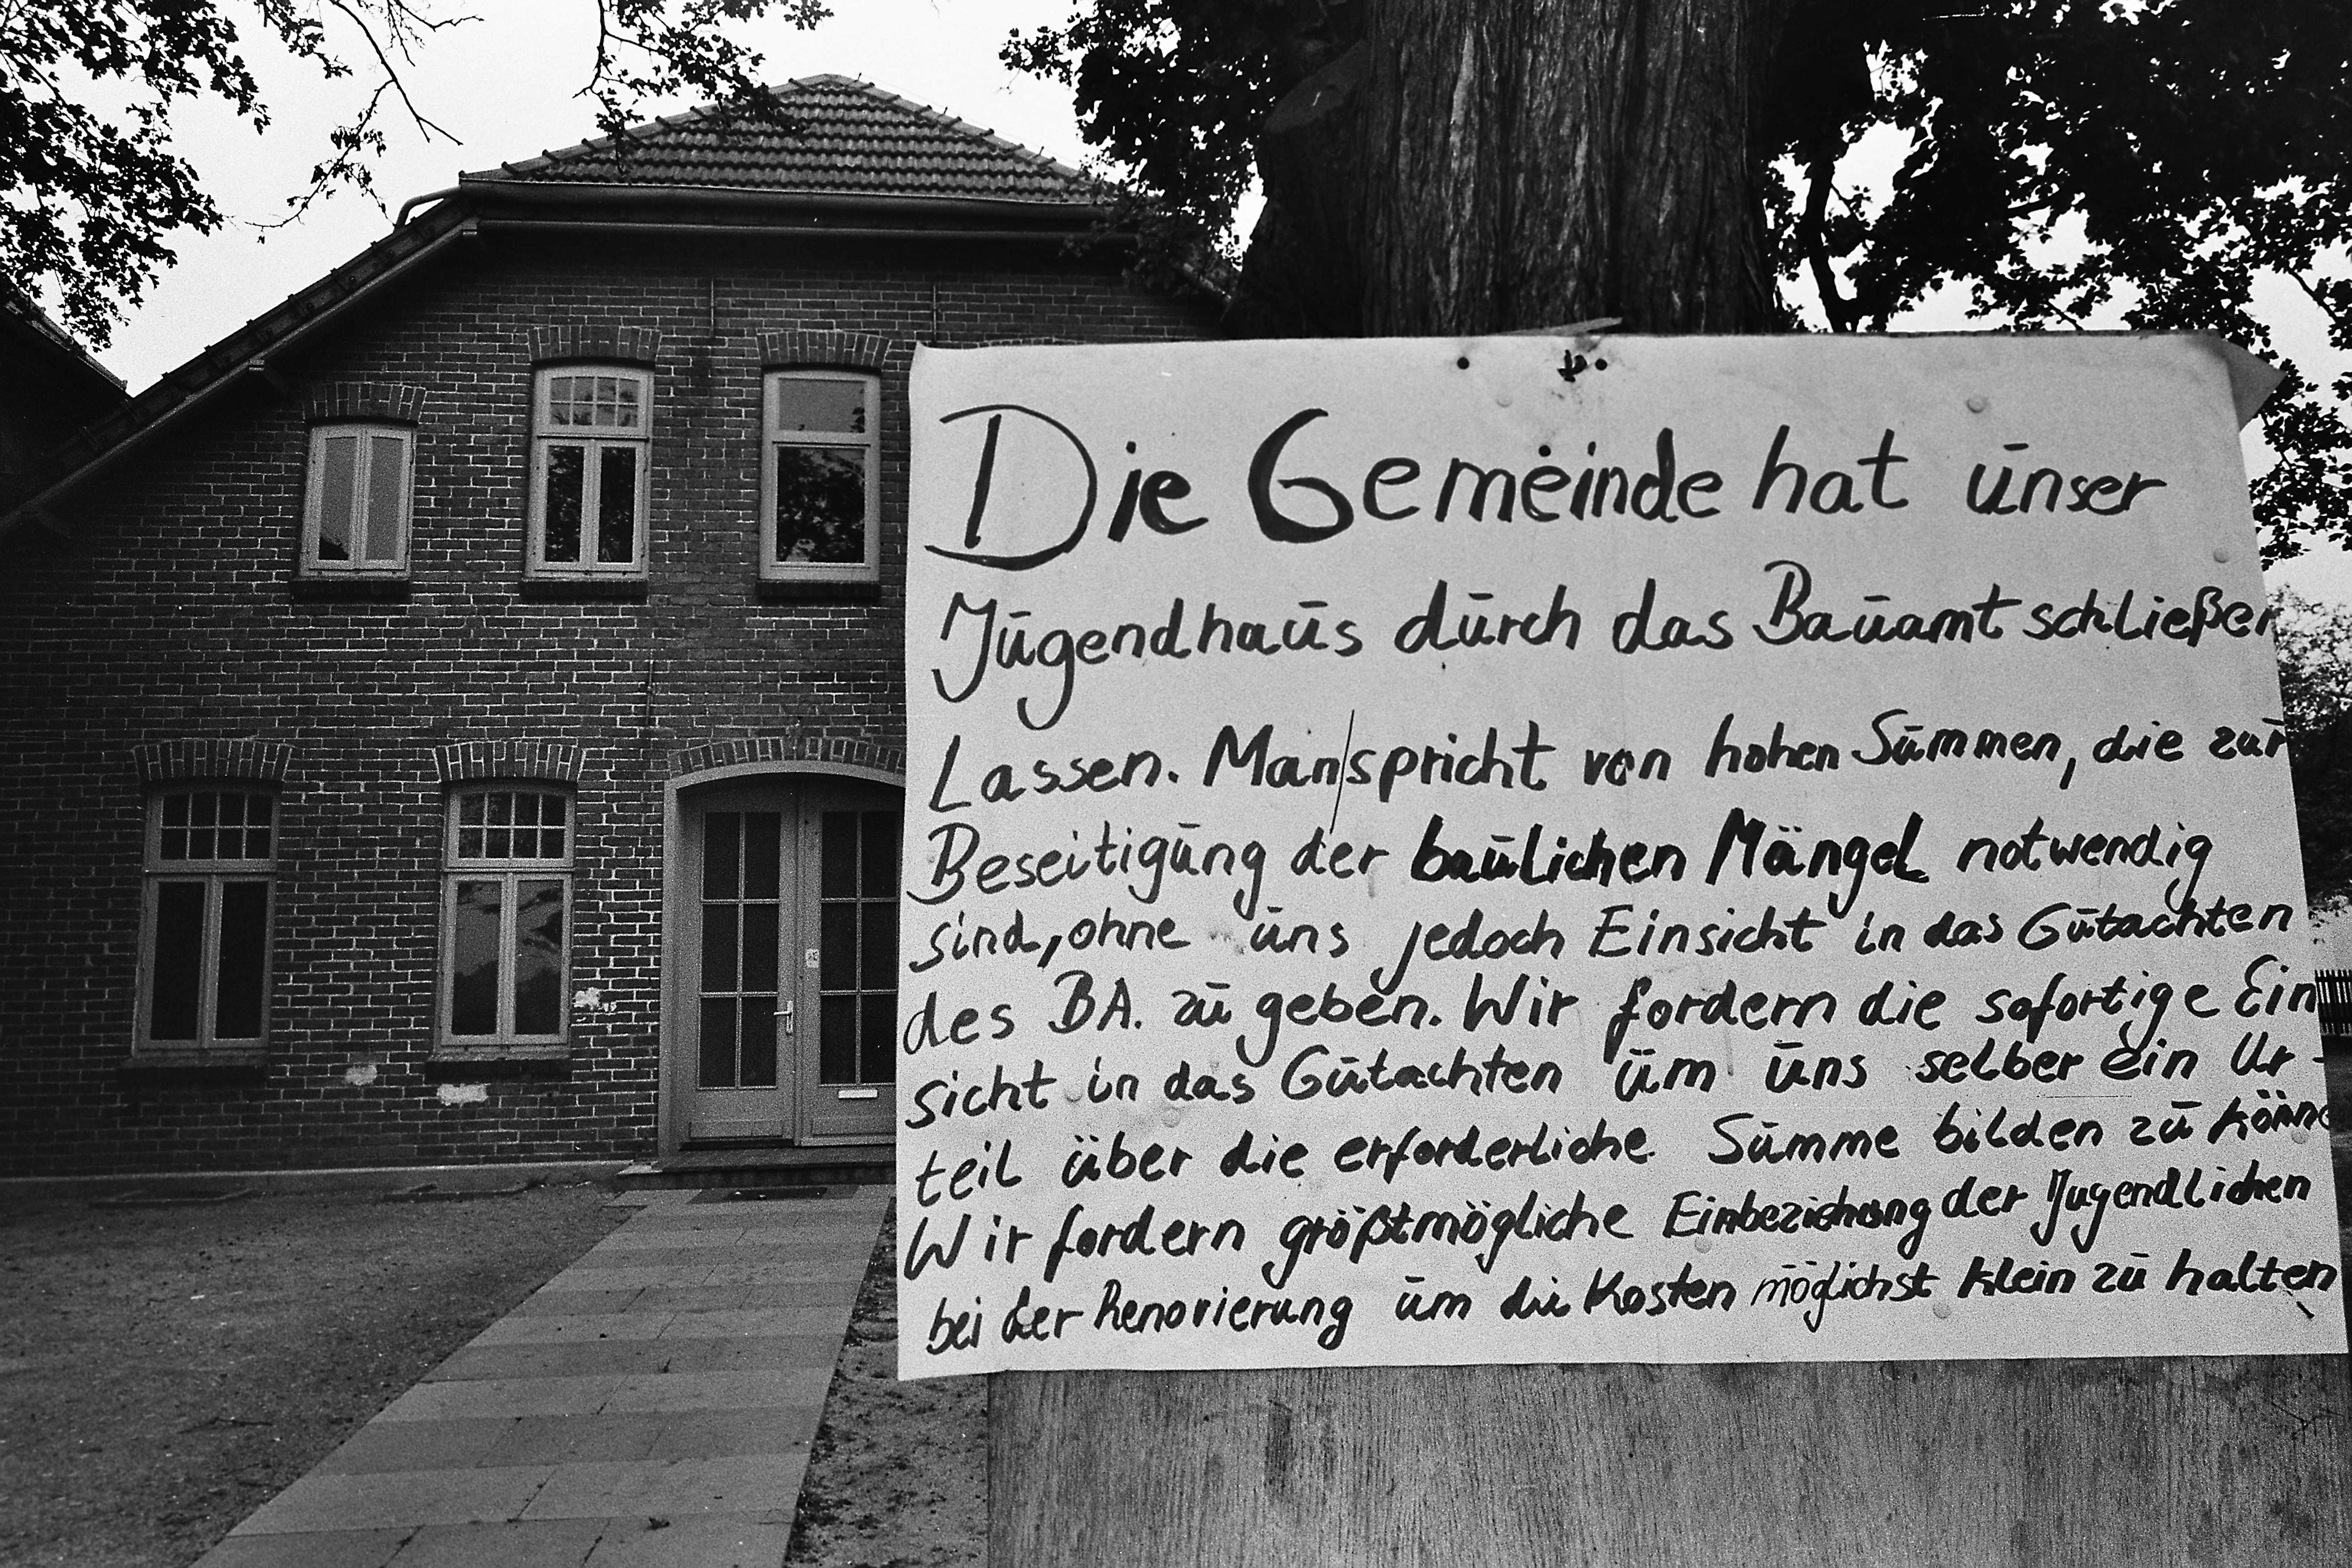 Die Gemeinde hat unser
Jugendhaus durch das Bauamt schließen
Lassen. Man spricht von hohen Summen, die zur
Beseitigung der baulichen Mängel notwendig
sind, ohne uns jedoch Einsicht in das Gutachten
des BA. zu geben. Wir fordern die sofortige Ein
sicht in das Gutachten um uns selber ein Ur-
teil über die erforderliche Summe bilden zu könne
Wir fordern größtmögliche Einbeziehung der Jugendlichen
bei der Renovierung um die Kosten möglichst klein zu halten